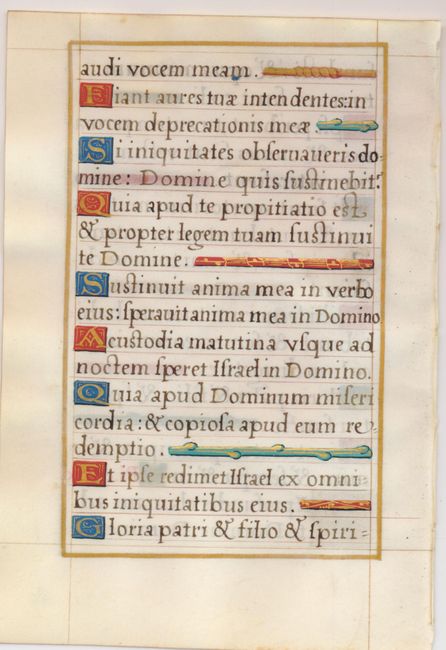 audi vocem meam.
Fiant aures tuæ intendentes: in
vocem deprecationis meæ.
Si iniquitates obseruaueris do-
mine: Domine quis sustinebit?
Quia apud te propitiatio est
& propter legem tuam sustinui
te Domine.
Sustinuit anima mea in verbo
eius: sperauit anima mea in Domino
A custodia matutina vsque ad
noctem speret Israel in Domino.
Quia apud Dominum miseri
cordia: & copiosa apud eum re-
demptio.
Et ipse redimet Israel ex omni-
bus iniquitatibus eius.
Gloria patri & filio & spiri-